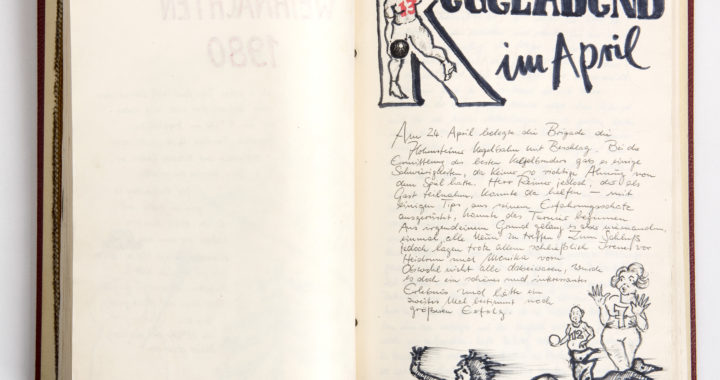 WEIHNACHTEN
1980
KEGELABEND
13
im April
Am 24 April belegte die Brigade die
Hohensteiner Kegelbahn mit Beschlag. Bei der
Ermittlung des besten Kegelbruders gab es einige
Schwierigkeiten, da keiner so richtige Ahnung von
dem Spiel hatte. Herr Reimer jedoch, der als
Gast teilnahm, konnte da helfen – mit
einigen Tips aus seinem Erfahrungsschatz
ausgerüstet, konnte das Turnier beginnen
Aus irgendeinem Grund gelang es aber niemandem,
einmal alle Neun zu treffen. Zum Schluß
jedoch lagen trotz allem schließlich Irene vor
Heidrun und Monika vorn
Obwohl nicht alle dabeiwaren, wurde
es doch ein schönes und interessantes
Erlebnis und hätte ein
zweites Mal bestimmt noch
größeren Erfolg.
12